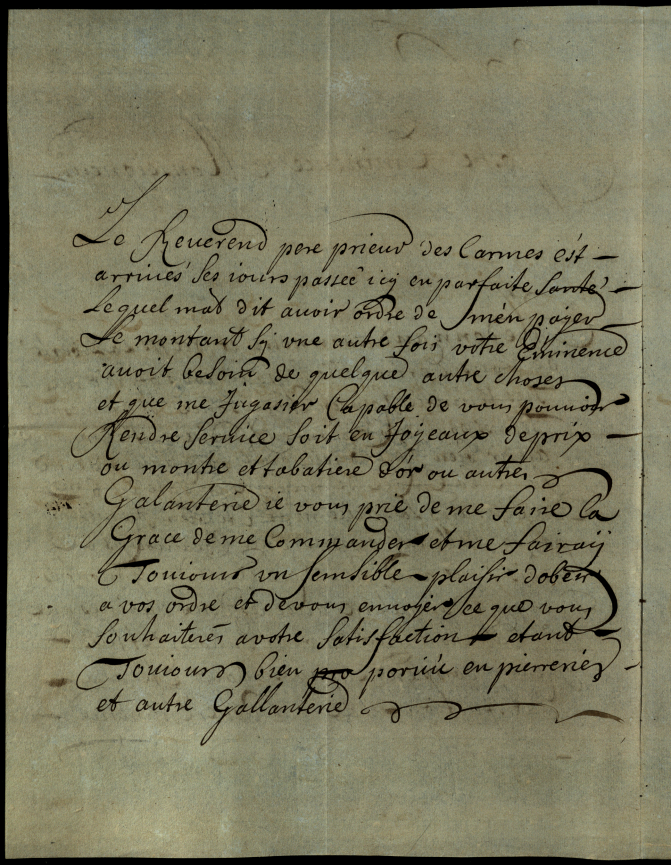 Le Reuerend pere prieur des Carmes ést
arriués ses iours passeé icy en parfaite Santé
Lequel mat dit auoir ordre de mén payer
Le montant Sy vne autre fois votre Eminence
auoit besoin de quelque autre choses
et que me Jugasier Capable de vous pouuoir
Rendre Service Soit en Joyeaux de prix
ou montre et tabatiere d'ór ou autres
Galanterie ie vous prië de me faire la
Grace de me Commander et me fairaÿ
Toujours vn sensible plaisir dobeir
a vos ordre et de vous enuoyér ce que vous
Souhaiterés avotre Satisfaction étant
Toujours bien pro poruü en pierreries
et autre Gallanterie